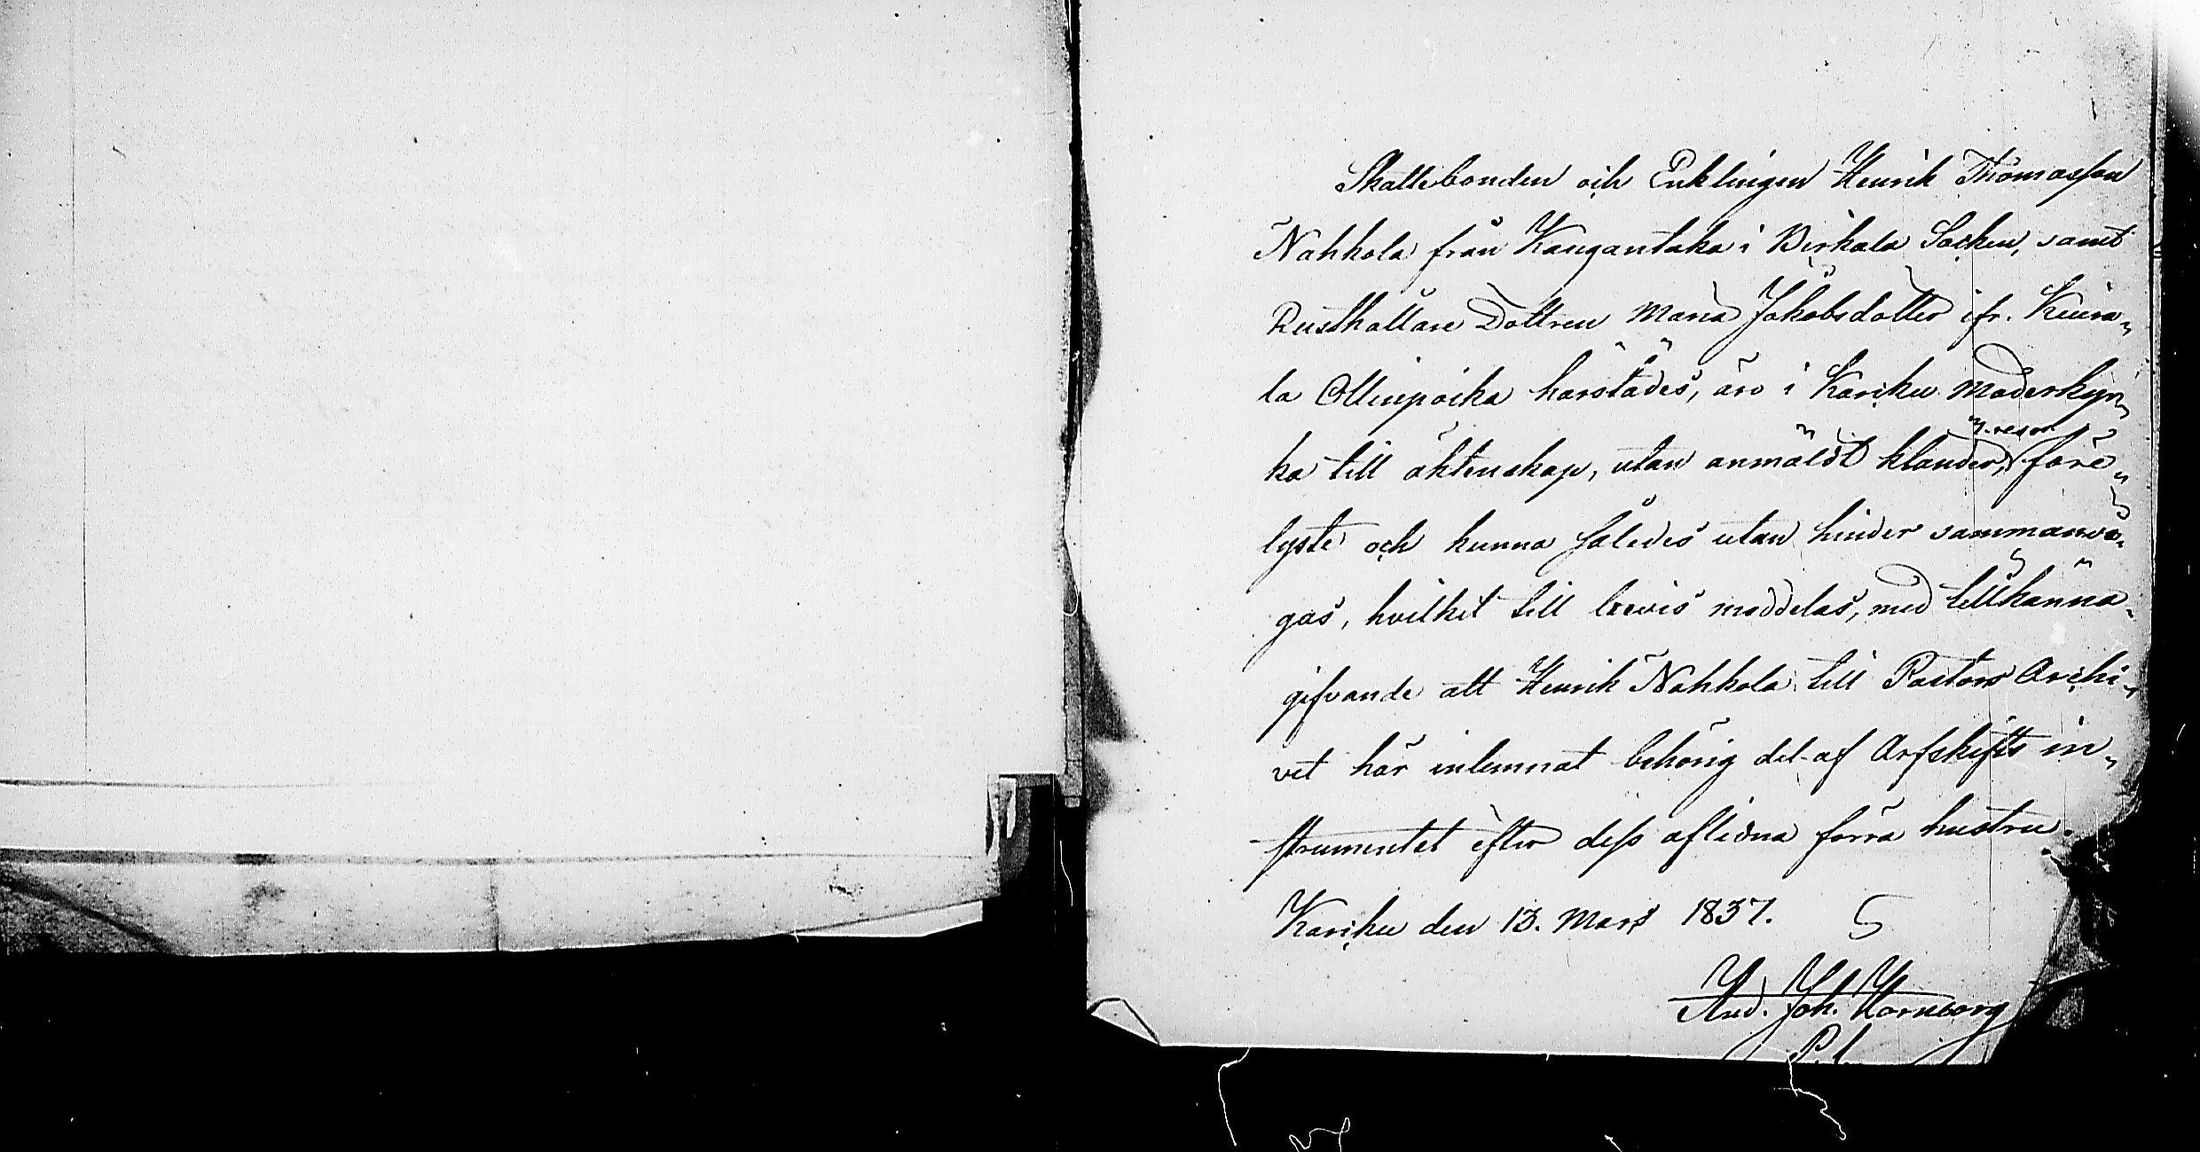 Skattebonden och Enklingen Henrik Thomasson
Nahkola från Kangantaka i Birkala Socken, samt
Rusthållare Dottren Maria Jakobsdotter ifr. Kuira„
la Ollinpoika härstädes, äro i Karku Moderkyr„
ka till äktenskap, utan anmäldt klander, 3. resor före„
lyste och kunna således utan hinder sammanvi„
gas, hvilket till bevis meddelas, med tillkänna„
gifvande att Henrik Nahkola till Pastors Archi„
vet här inlemnat behörig del af Arfskifts in„
strumentet efter dess aflidna förra hustru.
Karku den 13. Mars 1837. 5
And. Joh. Hornborg
P. l.